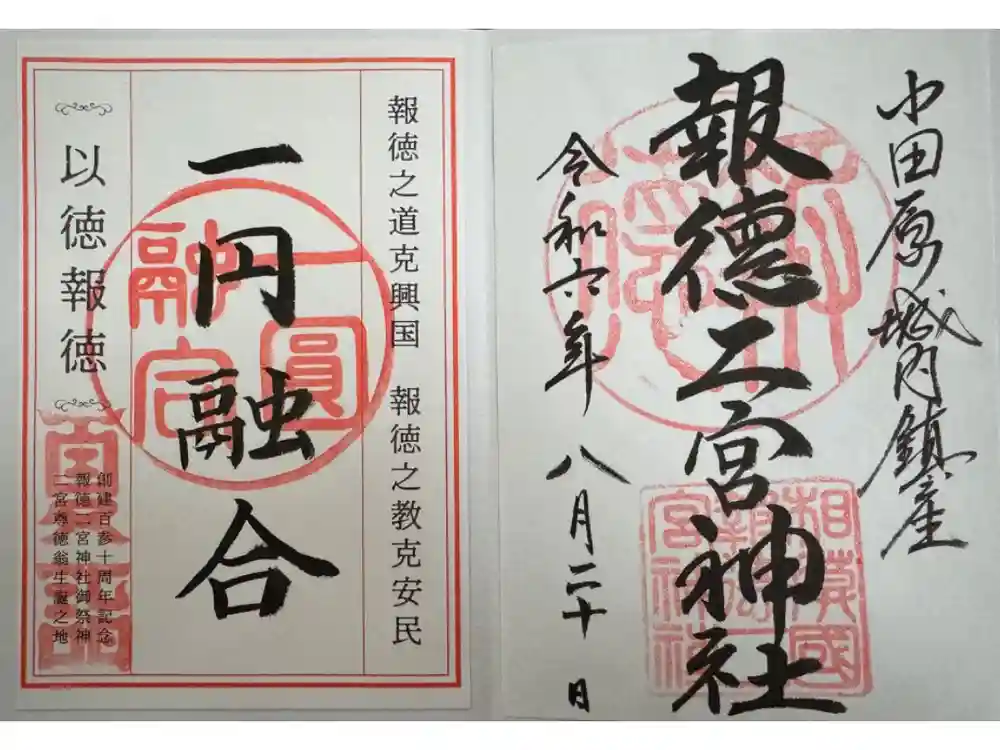 小田原城内鎮座
報徳二宮神社
令和六年八月二十日
相模國
報徳二
宮神社
報徳之道克興国　報徳之教克安民
一円融合
一圓
融合
以徳報徳
創建百参十周年記念
報徳二宮神社御祭神
二宮尊徳翁生誕之地